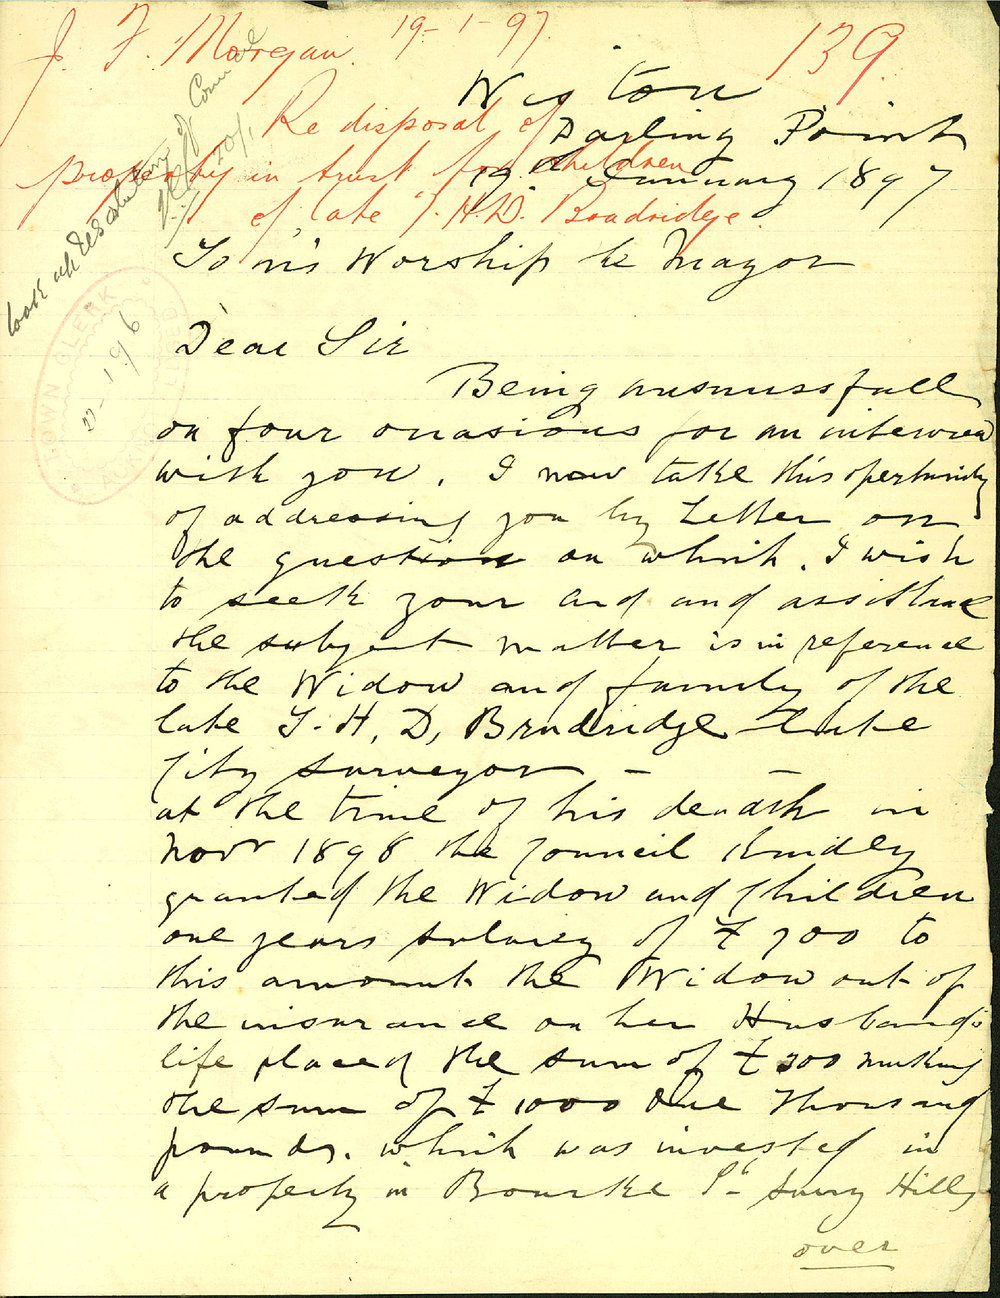 J. F. Morgan. 19-1-97.
139.
Re disposal of
property in trust for children
of late T. H. D. Broadridge.
look up
20/1
TOWN CLERK
Weston
Darling Point
19th January 1897
To His Worship the Mayor
Dear Sir
Being unsuccessfull
on four occasions for an interview
with you. I now take this opertunity
of addressing you by Letter on
the question on which. I wish
to seek your aid and assistance
the subject matter is in reference
to the Widow and family of the
late T. H. D. Broadridge late
City surveyor —
at the time of his death in
Novr 1898 the Council kindley
granted the Widow and Children
one years salarey of £700 to
this amount the Widow out of
the insurance on her Husbands
life placed the sum of £300 making
the sum of £1000 One Thousand
pounds. which was invested in
a property in Bourke St Surry Hills
over